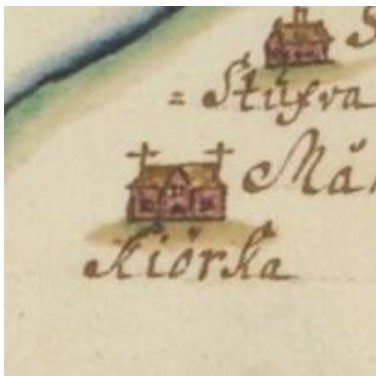 S
= Stufva
Må
Kiörka